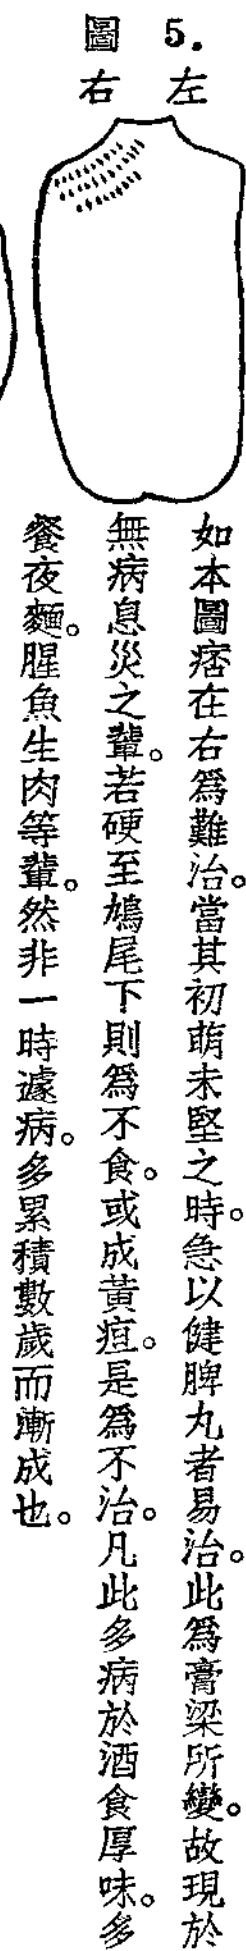 圖 5.
右 左
如本圖痞在右爲難治。當其初萌未堅之時。急以健脾丸者易治。此爲膏梁所變。故現於
無病息災之輩。若硬至鳩尾下則爲不食。或成黃疸。是爲不治。凡此多病於酒食厚味。多
餐夜麵。腥魚生肉等輩。然非一時遽病。多累積數歲而漸成也。